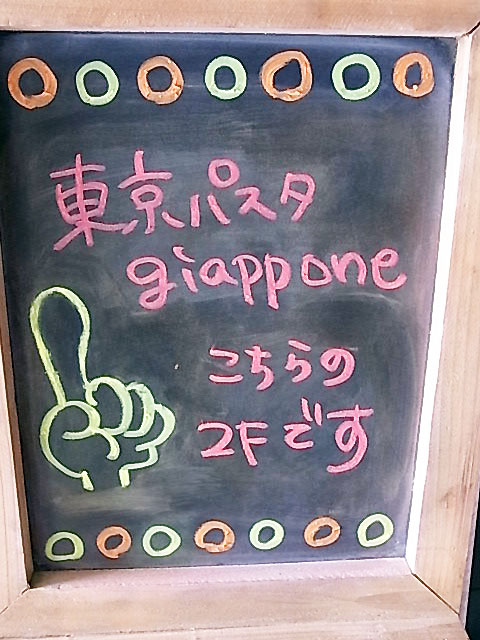 東京パスタ
giappone
こちらの
2Fです